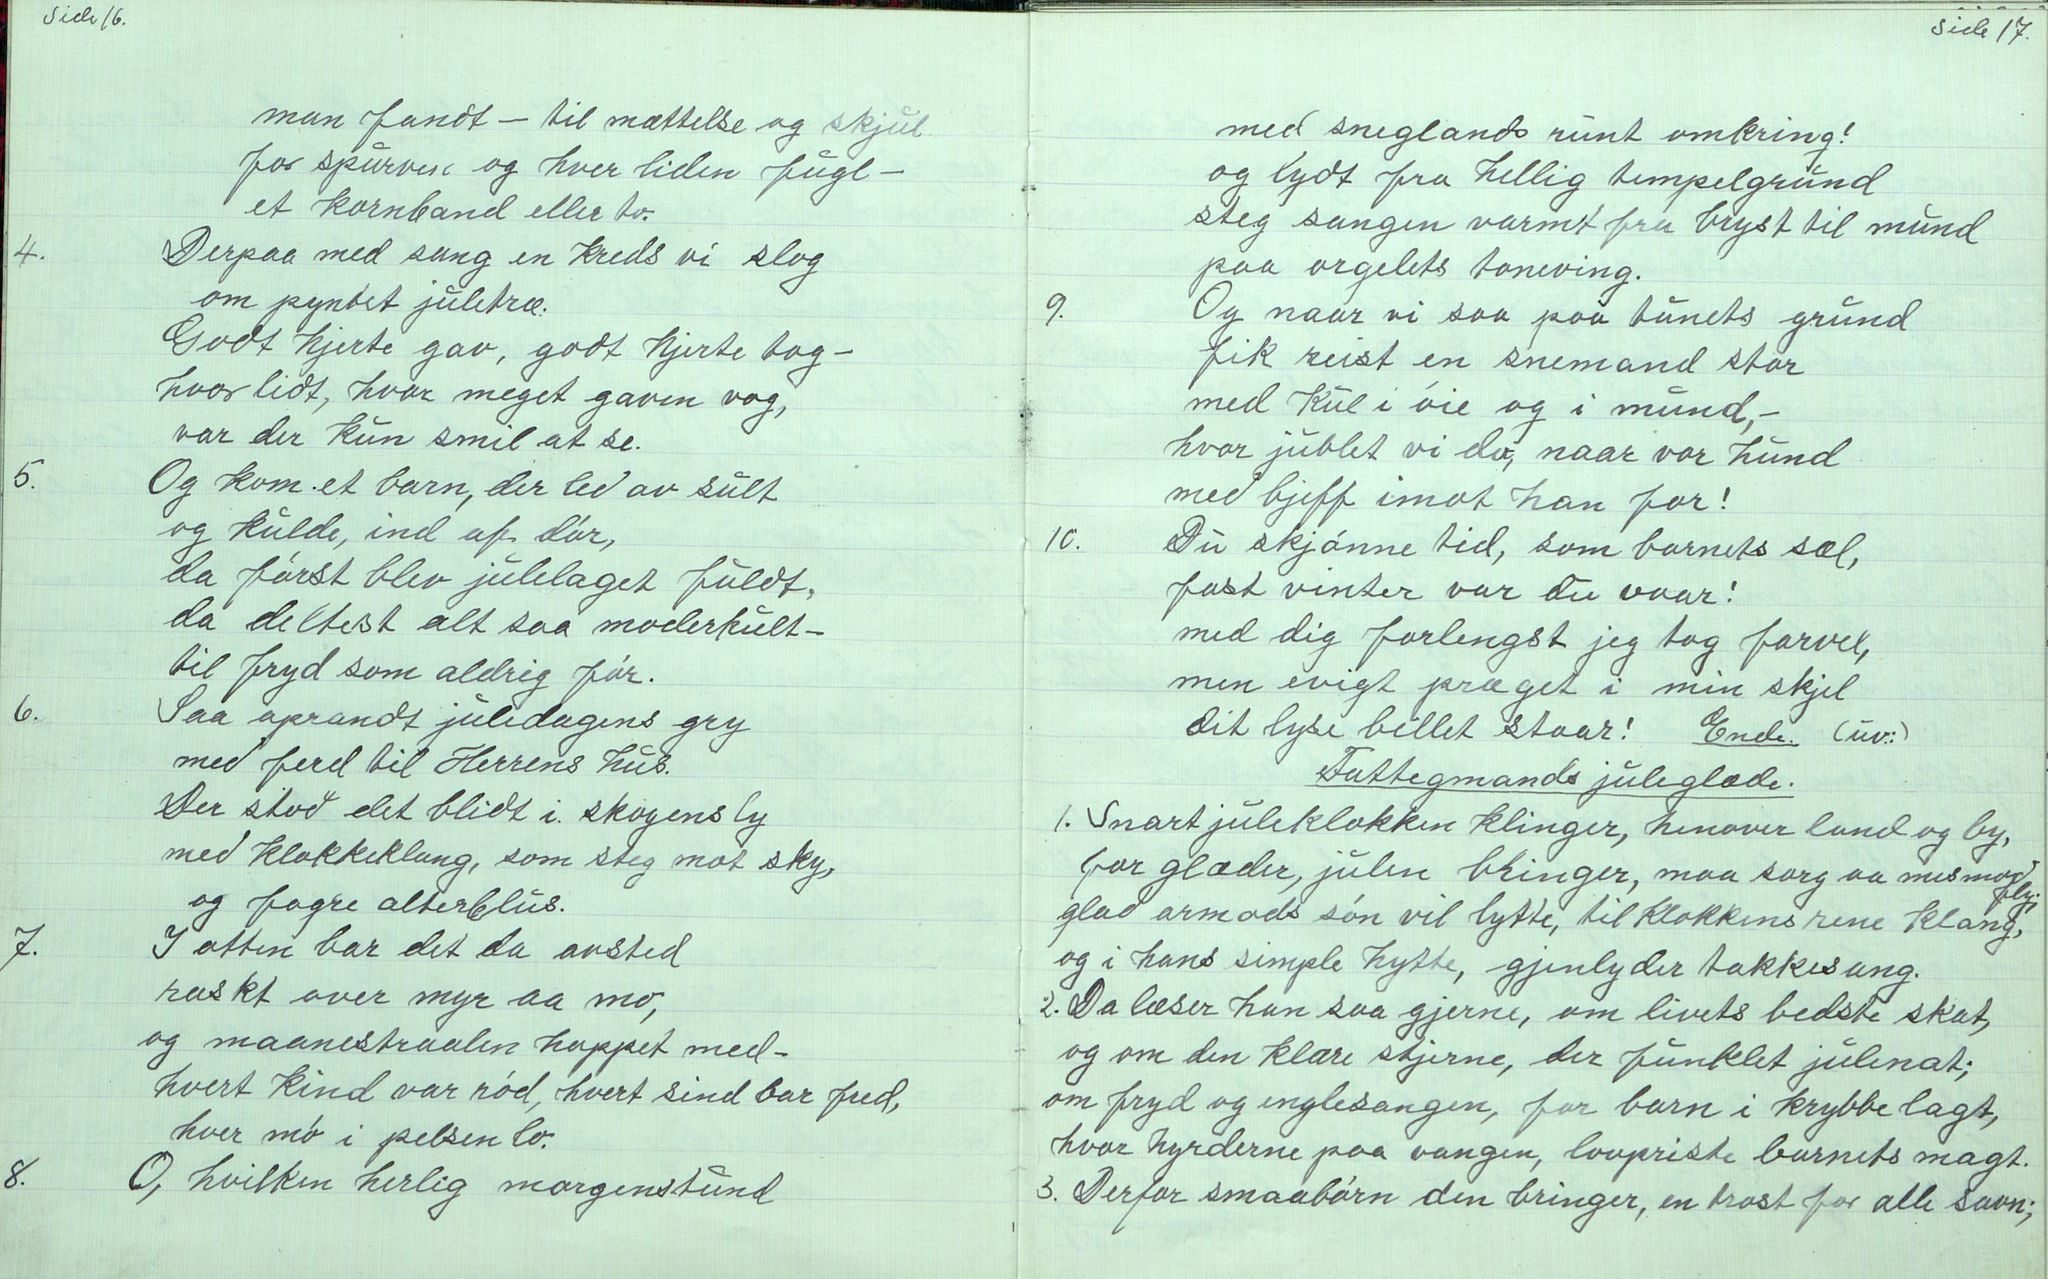 Side 16.
man fandt – til mættelse og skjul
for spurven og hver liden fugl –
et kornband eller to.
4. Derpaa med sang en kreds vi slog
om pyntet juletræ.
Godt hjerte gav, godt hjerte tog –
hvor lidt, hvor meget gaven vog,
var der kun smil at se.
5. Og kom et barn, der led av sult
og kulde, ind af dór,
da fórst blev julelaget fuldt,
da deltest alt saa moderhult –
til fryd som aldrig fór.
6. Saa oprandt juledagens gry
med ferd til Herrens hus.
Der stod det blidt i skogens ly
med klokkeklang, som steg mot sky,
og fagre alterblus.
7. I otten bar det da avsted
raskt over myr aa mo,
og maanestraalen hoppet med –
hvert kind var ród, hvert sind bar fred,
hver mó i pelsen lo.
8. O, hvilken herlig morgenstund
Side 17.
med sneglands runt omkring!
og lydt fra hellig tempelgrund
steg sangen varmt fra bryst til mund
paa orgelets toneving.
9. Og naar vi saa paa tunets grund
fik reist en snemand stor
med kul i óie og i mund, –
hvor jublet vi da, naar vor hund
med bjeff imot han for!
10. Du skjónne tid, som barnets sæl,
fast vinter var du vaar!
med dig forlengst jeg tog farvel,
men evigt præget i min skjel
dit lyse billet staar! Ende. (uv:)
Fattegmands juleglæde.
1. Snart juleklokken klinger, henover land og by,
for glæder, julen bringer, maa sorg aa mismod fly;
glad armods són vil lytte, til klokkens rene klang,
og i hans simple hytte, gjenlyder takkesang.
2. Da læser han saa gjerne, om livets bedste skat,
og om den klare stjerne, der funklet julenat;
om fryd og englesangen, for barn i krybbe lagt,
hvor hyrderne paa vangen, lovpriste barnets magt.
3. Derfor smaabórn den bringer, en trost for alle savn;